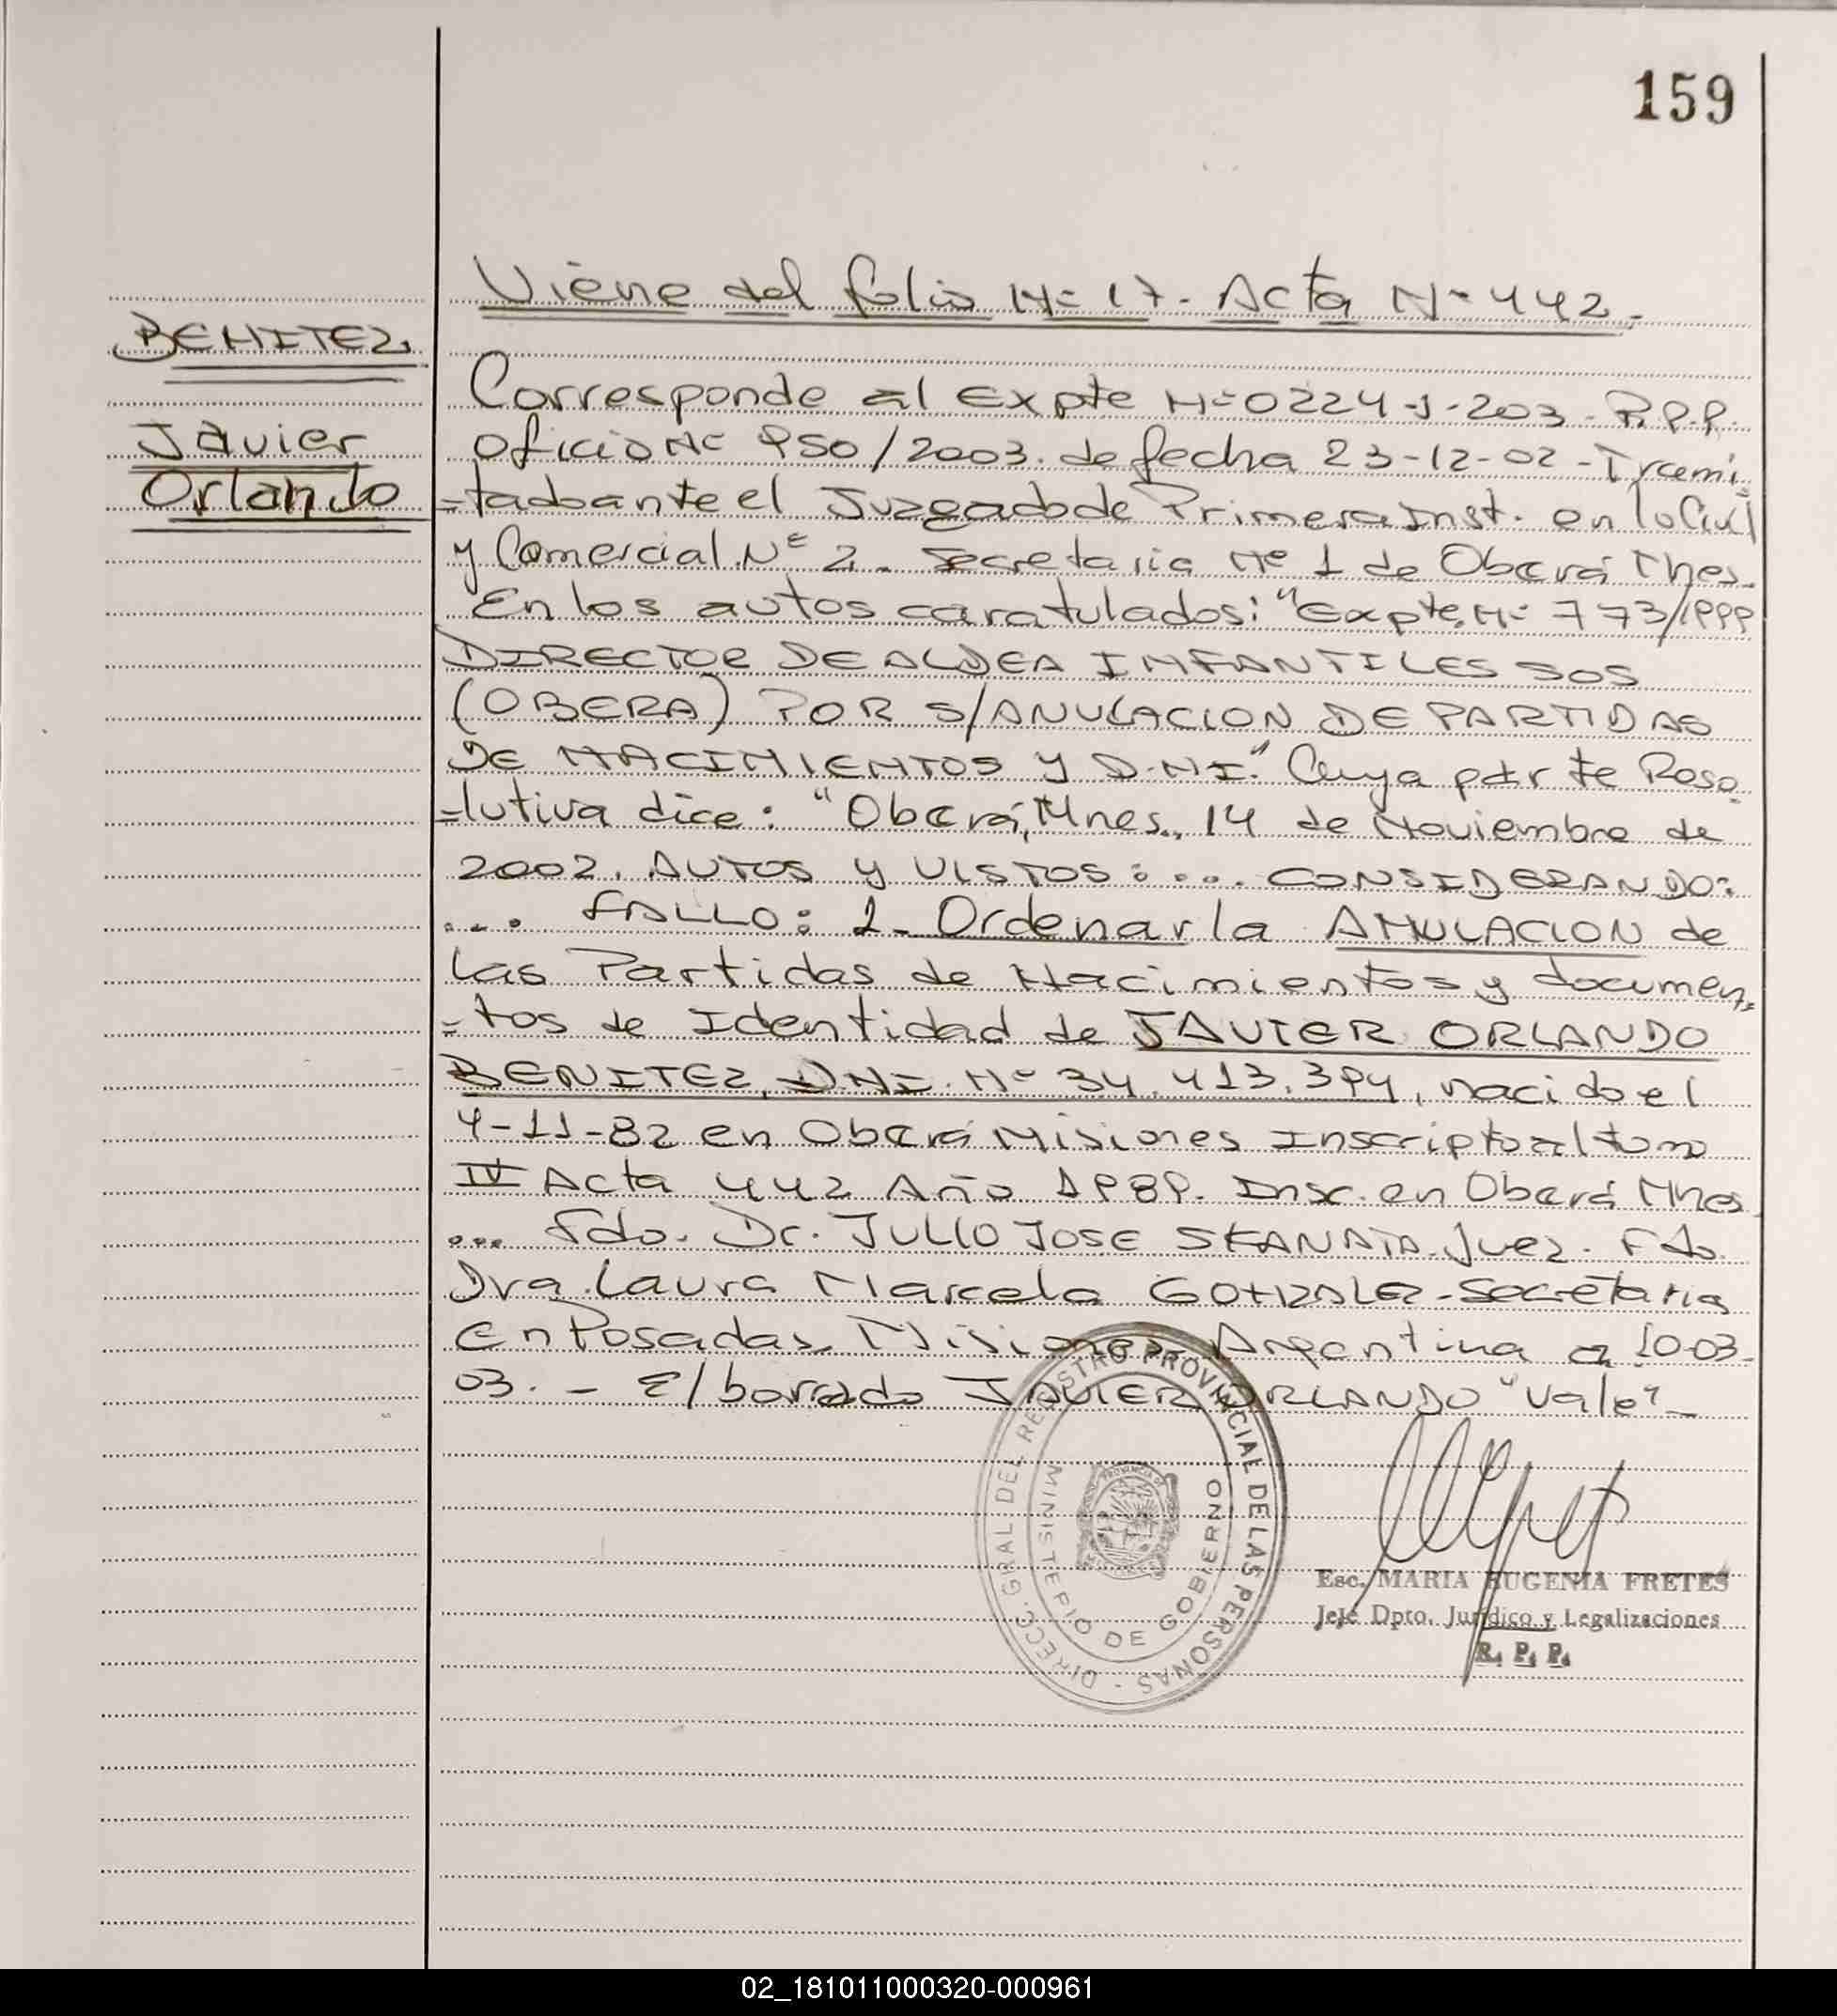 159
Viene del folio Nº 17 - Acta Nº 442.
BENITEZ
Javier
Orlando
Corresponde al Expte Nº 0224-J-203 - R.P.P.
Oficio Nº 950/2003. de fecha 23-12-02 - Trami
=tado ante el Juzgado de Primera Inst. en lo Civil
y Comercial Nº 2. Secretaria Nº 1 de Oberá Mnes.
En los autos caratulados: "Expte. Nº 773/1999
DIRECTOR DE ALDEA INFANTILES SOS
(OBERA) POR S/ANULACION DE PARTIDAS
DE NACIMIENTOS Y D.N.I." Cuya parte Reso
=lutiva dice: "Oberá, Mnes., 14 de Noviembre de
2002. AUTOS Y VISTOS: ... CONSIDERANDO:
... FALLO: 1- Ordenar la ANULACION de
las Partidas de Nacimientos y documen
=tos de Identidad de JAVIER ORLANDO
BENITEZ, D.N.I. Nº 34.413.394, nacido el
4-11-82 en Oberá Misiones Inscripto al tomo
IV Acta 442 Año 1989. Insc. en Oberá Mnes
... Fdo. Dr. JULIO JOSE SKANATA. Juez. Fdo.
Dra. Laura Marcela GONZALEZ - Secretaria
En Posadas, Misiones Argentina a 10-03-
03. - E/borrado JAVIER ORLANDO "vale" -
DIRECC. GRAL DEL REGISTRO PROVINCIAL DE LAS PERSONAS -
MINISTERIO DE GOBIERNO
Esc. MARIA EUGENIA FRETES
Jefe Dpto. Jurídico y Legalizaciones
R. P. P.
02_181011000320-000961